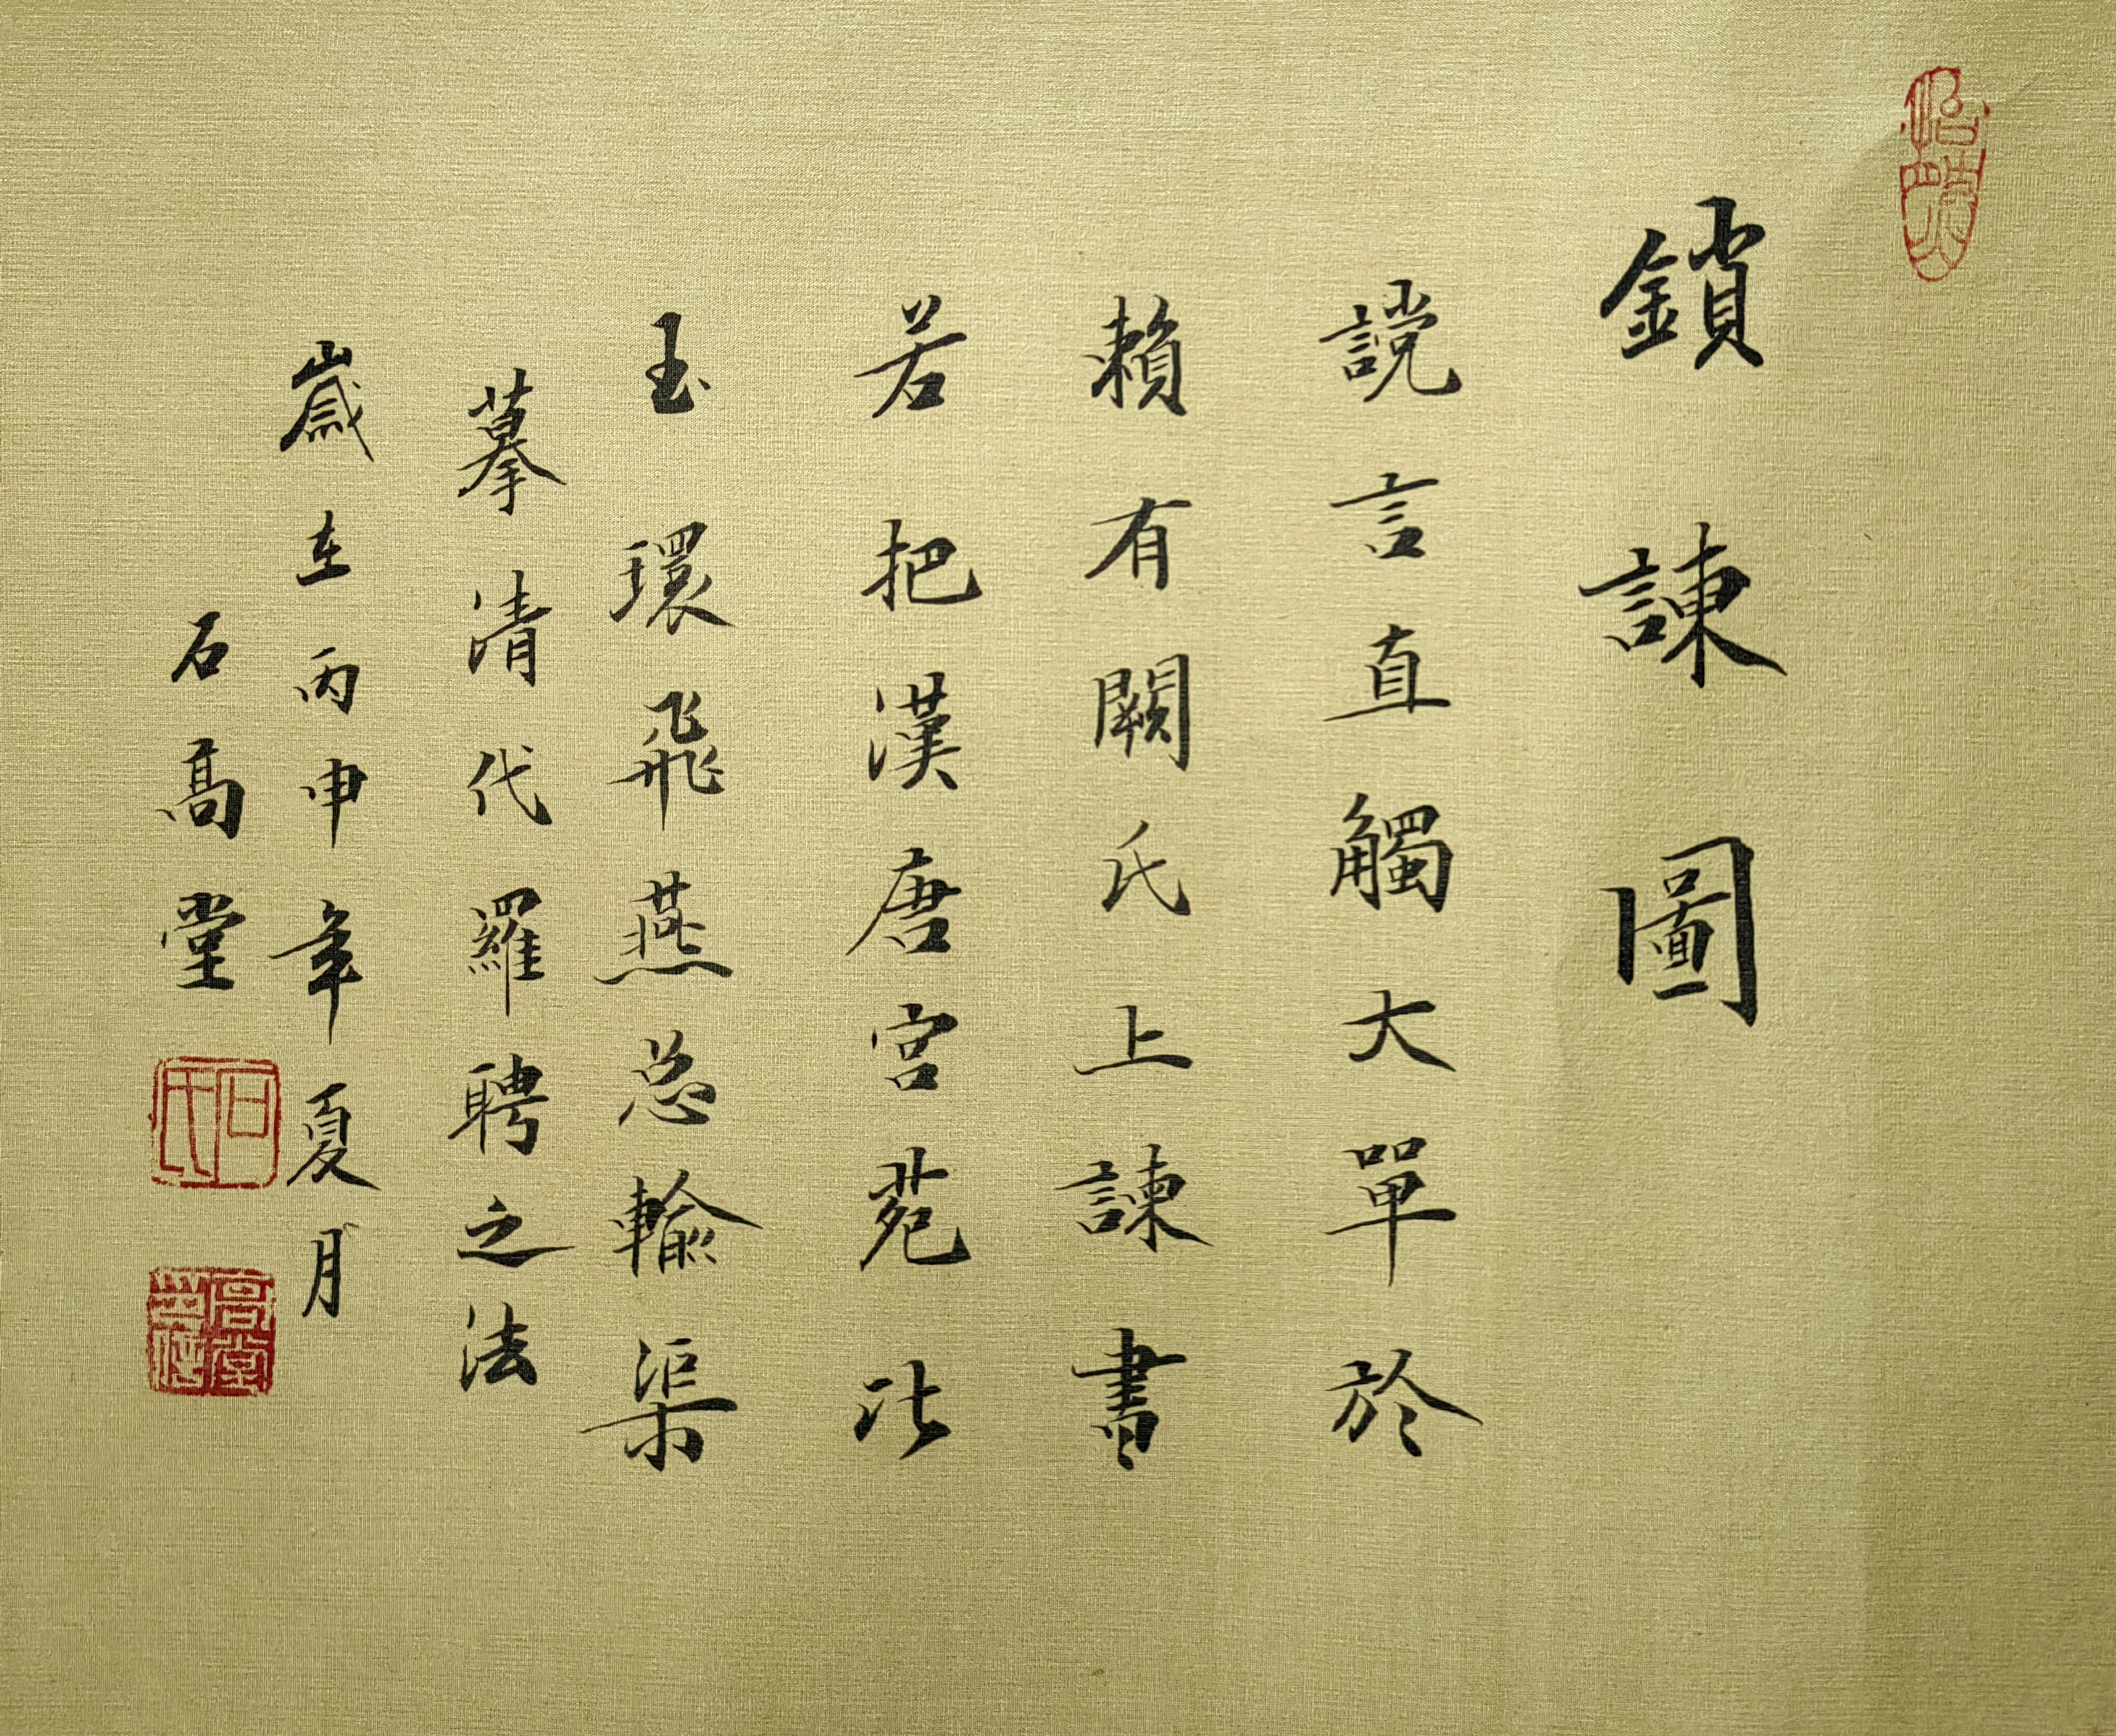 鎖諫圖
讜言直觸大單於
賴有閼氏上諫書
若把漢唐宮苑比
玉環飛燕总輸渠
摹清代羅聘之法
歲在丙申年夏月
石高堂
石氏
高堂